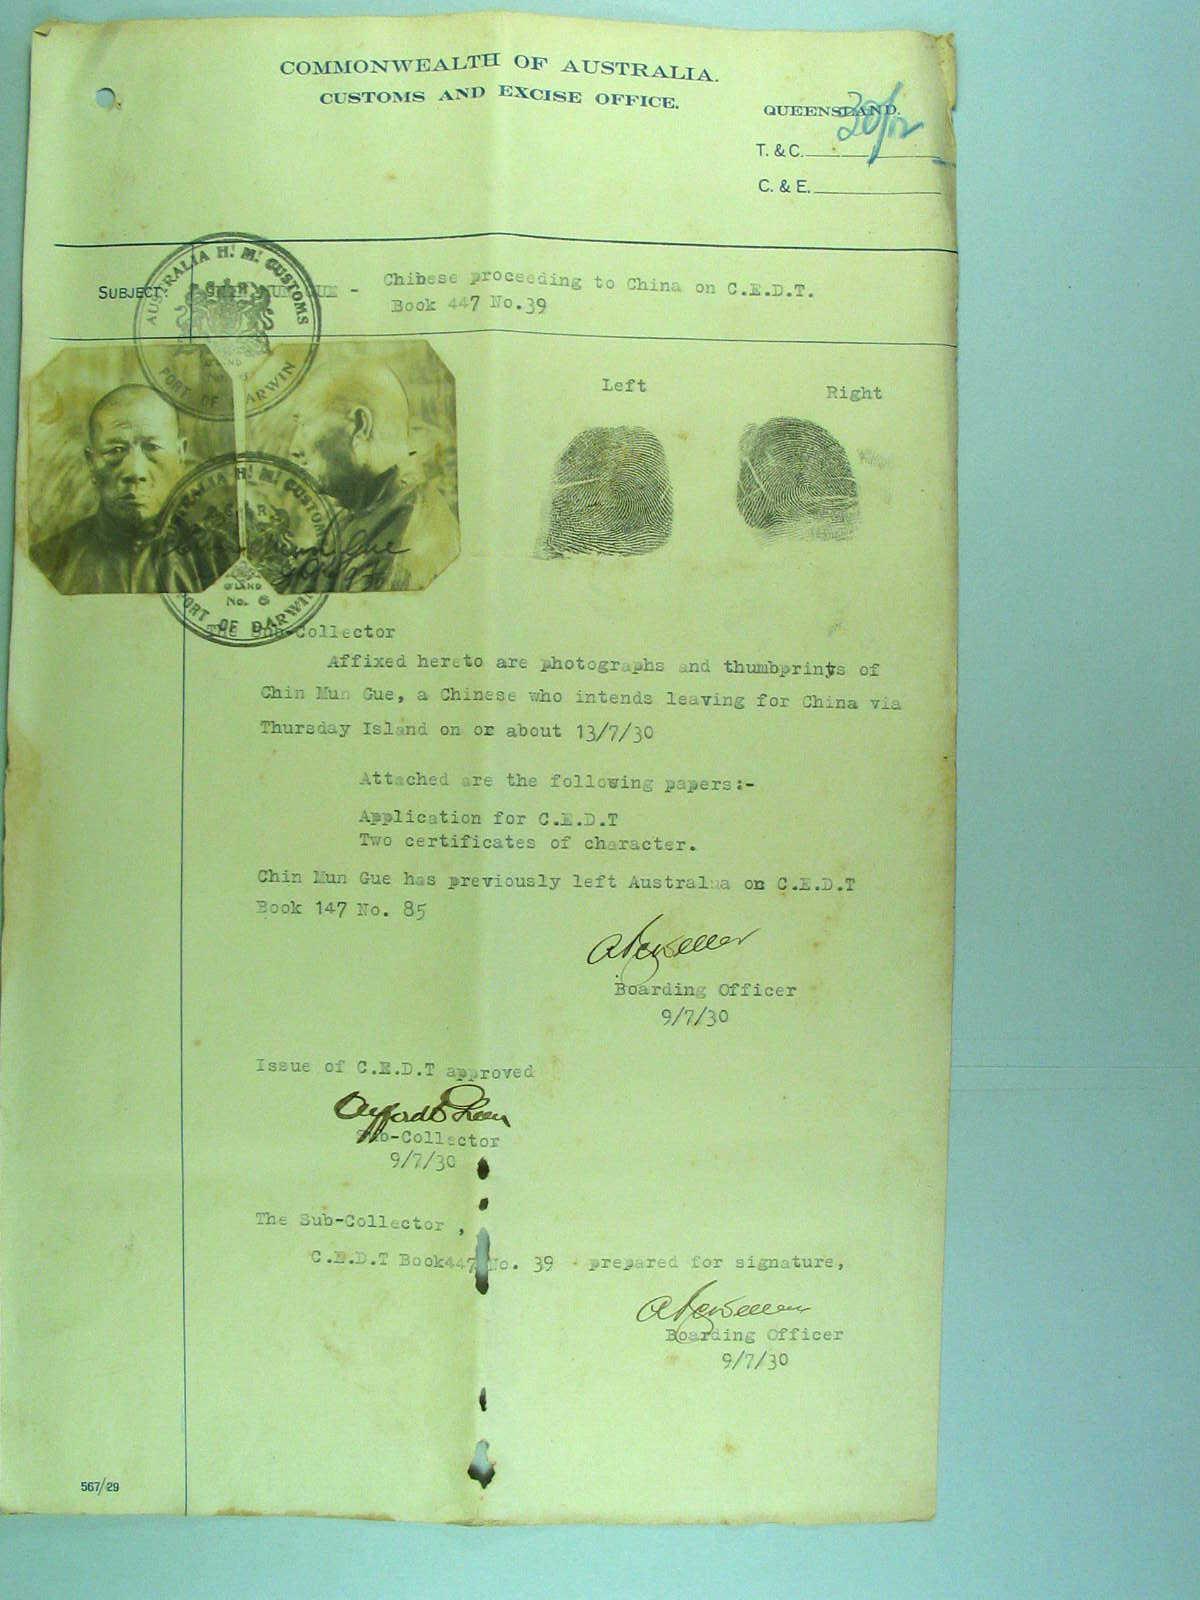 COMMONWEALTH OF AUSTRALIA.
CUSTOMS AND EXCISE OFFICE.
QUEENSLAND.
30/12
T. & C.
C. & E.
SUBJECT: CHIN MUN GUE - Chibese proceeding to China on C.E.D.T.
Book 447 No.39
AUSTRALIA H. M. CUSTOMS
PORT OF DARWIN
Left
Right
AUSTRALIA H. M. CUSTOMS
Mun Gue
Q'LAND
No. 6
PORT OF DARWIN
The Sub-Collector
Affixed hereto are photographs and thumbprints of
Chin Mun Gue, a Chinese who intends leaving for China via
Thursday Island on or about 13/7/30
Attached are the following papers:-
Application for C.E.D.T
Two certificates of character.
Chin Mun Gue has previously left Australua on C.E.D.T
Book 147 No. 85
Boarding Officer
9/7/30
Issue of C.E.D.T approved
Sub-Collector
9/7/30
The Sub-Collector ,
C.E.D.T Book447 No. 39 prepared for signature,
Boarding Officer
9/7/30
567/29